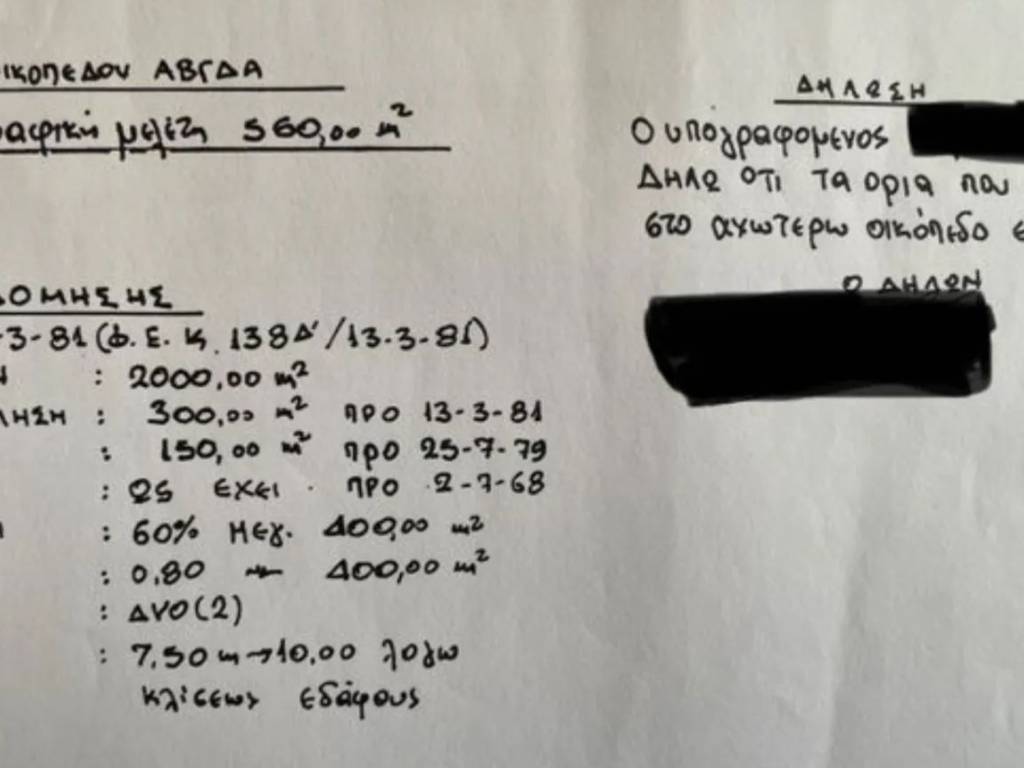 ΙΚΟΠΕΔΟΥ ΑΒΓΔΑ
ραφική μελέτη 560,00 m²
ΔΟΜΗΣΗΣ
3-81 (Φ.Ε.Κ. 138Δ'/13.3-81)
Ν : 2000,00 m²
ΛΗΣΗ : 300,00 m² ΠΡΟ 13-3-81
: 150,00 m² ΠΡΟ 25-7-79
: ΩΣ ΕΧΕΙ ΠΡΟ 2-7-68
: 60% ΜΕΓ. 400,00 m²
: 0,80 400,00 m²
: ΔΥΟ(2)
: 7,50 m → 10,00 λόγω
κλίσεως εδάφους
ΔΗΛΩΣΗ
Ο υπογραφομενος
ΔΗΛΩ ΟΤΙ ΤΑ ορια που
στο ανωτερω οικόπεδο ε
Ο ΔΗΛΩΝ